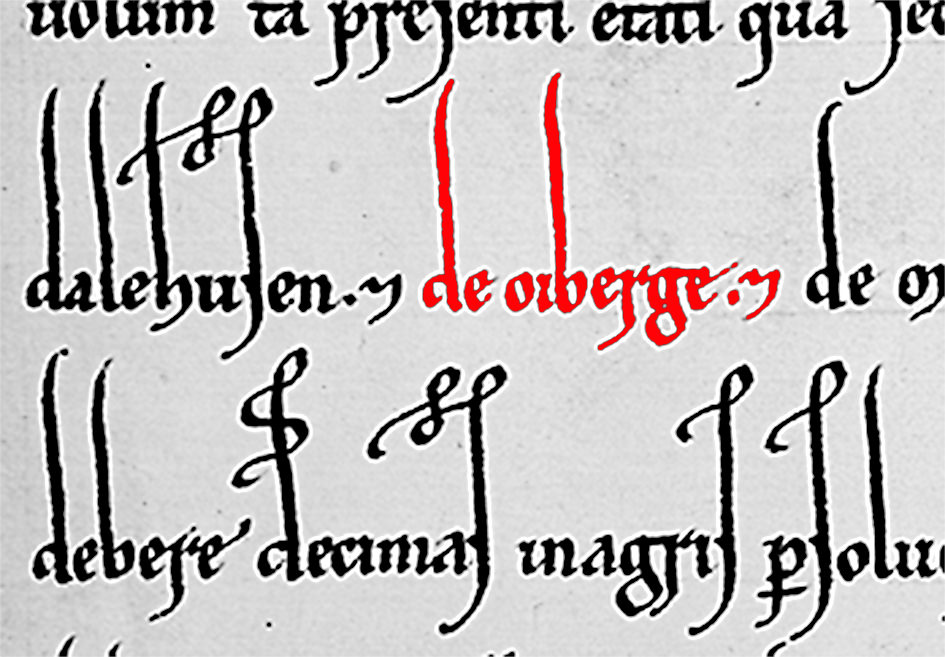 uolum ta presenti etati qua
dalehusen.⁊ de oiberge.⁊ de
debere decimas inagris ꝑsolu